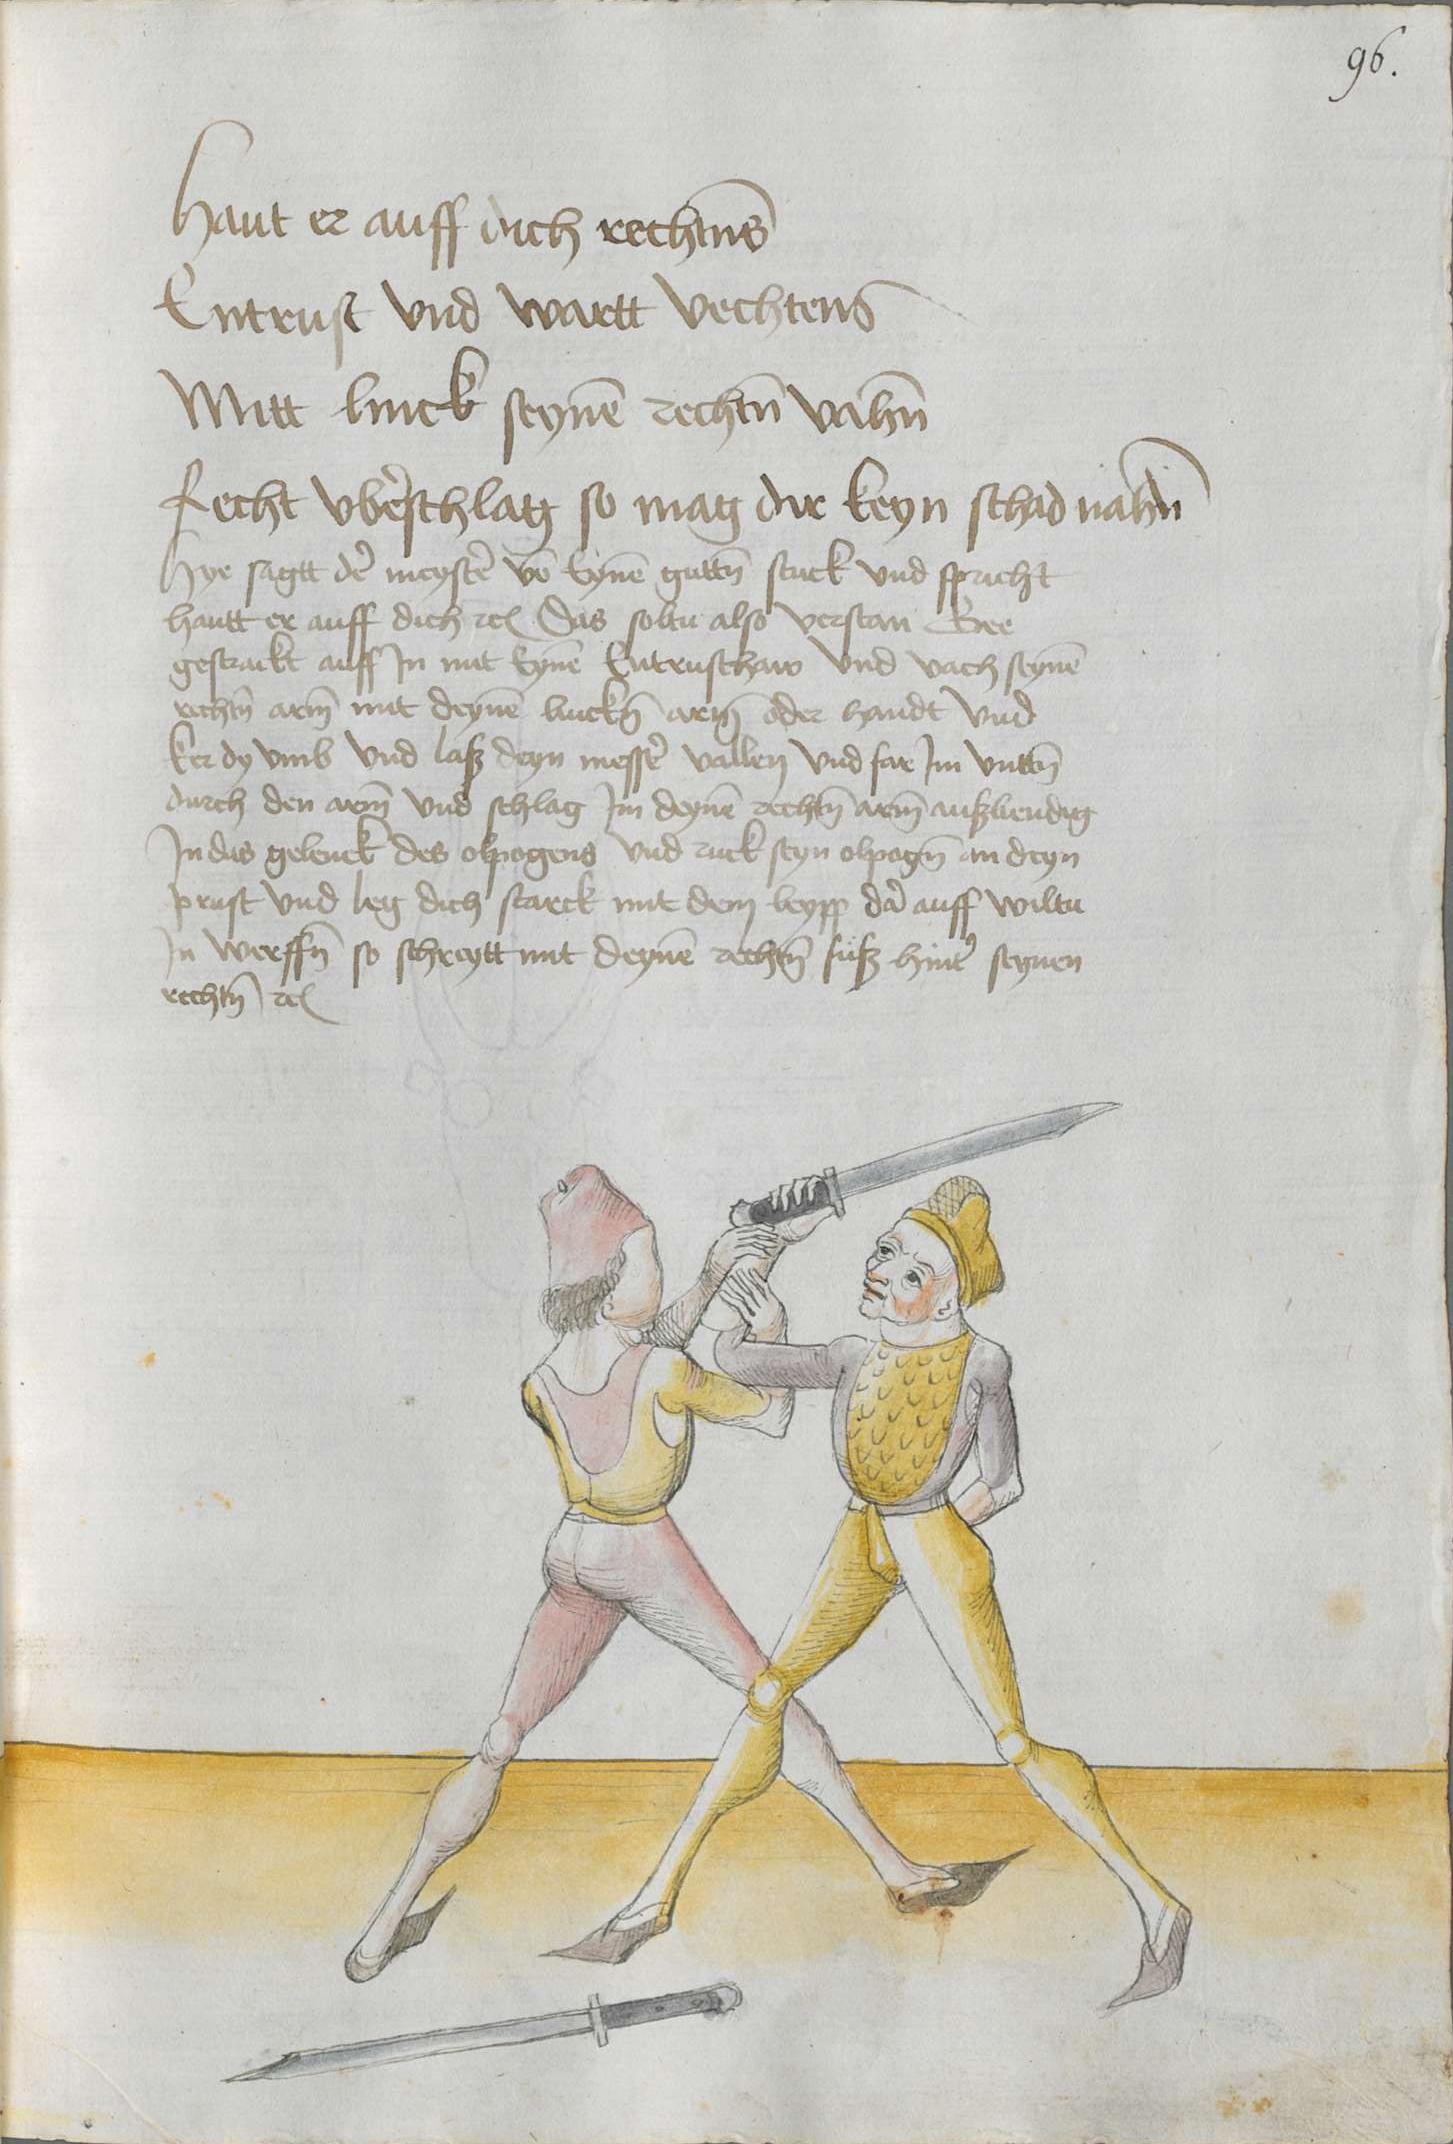 96.
Haut er auff dich rechtns
Entrust vnd wartt vechtens
Mitt linck seynē rechtn̄ vahn̄
Recht vbe͛schlag so mag dir keyn schad nahn̄
Hye sagtt de͛ meyste͛ vō Eynē guttn̄ stuck vnd spricht
hautt er auff dich ꝛcͣ Das soltu also verstan Gee
gestrackt auff In mit Eynē Entrusthaw vnd vach seynē
rechtn̄ arm̄ mit deynē linckn̄ arm̄ oder handt vnd
ker dy vmb vnd laß deyn messe͛ vallen vnd far Im vnttn̄
durch den arm̄ vnd schlag Im deynē rechtn̄ arm̄ außbendig
In das gelenck des olpogens vnd ruck seyn olpogn̄ an deyn
prust vnd leg dich starck mit dem leypp da͛ auff wiltu
In werffn̄ so schreytt mit deynē rechtn̄ fuß hint͛ seynen
rechtn̄ ꝛcͣ